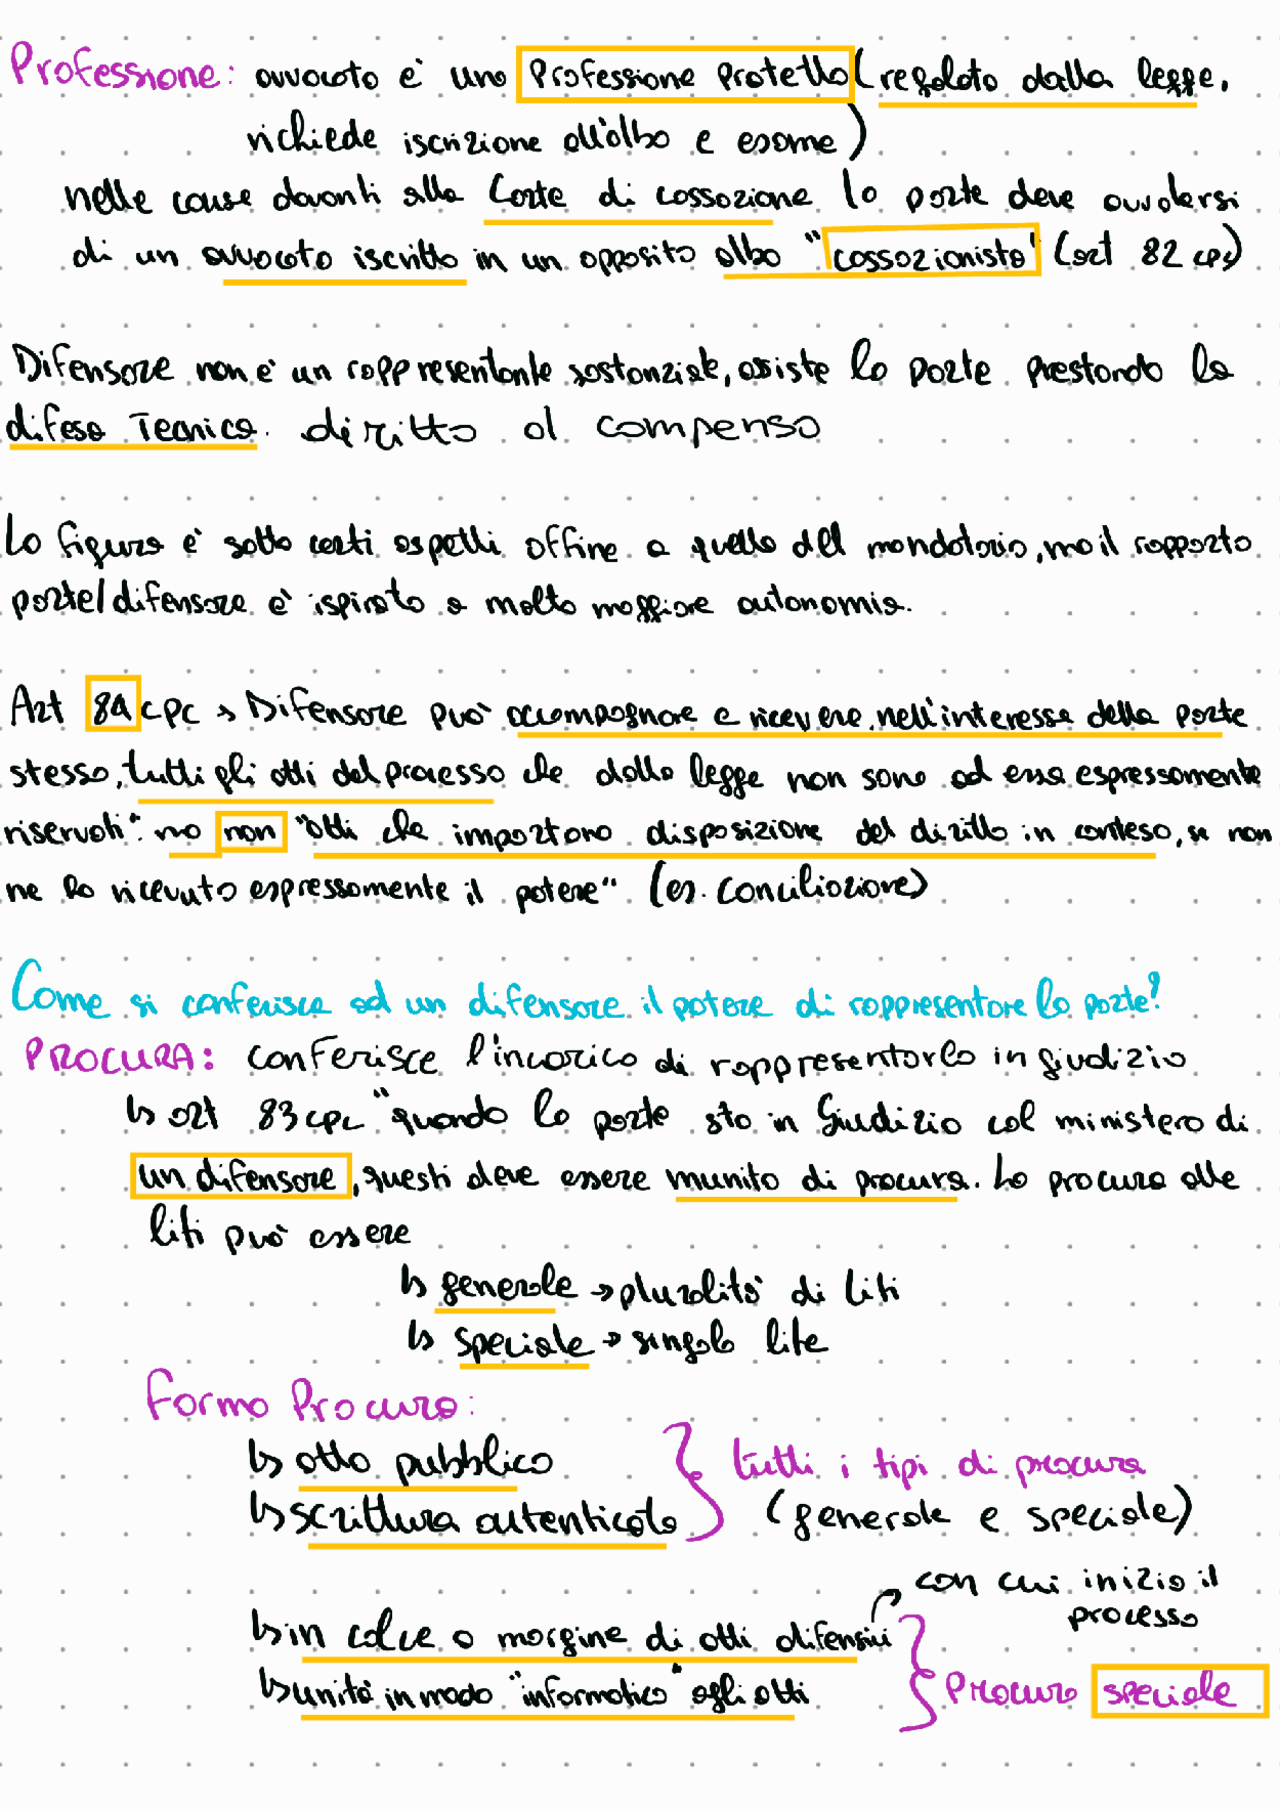 Professione: avvocato è una Professione Protetta (regolata dalla legge,
richiede iscrizione all'albo e esame)
nelle cause davanti alla Corte di cassazione la parte deve avvalersi
di un avvocato iscritto in un apposito albo "cassazionista" (art 82 cpc)
Difensore non è un rappresentante sostanziale, assiste la parte prestando la
difesa Tecnica. diritto al compenso
La figura è sotto certi aspetti affine a quella del mandatario, ma il rapporto
parte/difensore è ispirato a molta maggiore autonomia.
Art 84 cpc → Difensore può accompagnare e ricevere, nell'interesse della parte
stessa, tutti gli atti del processo che dalla legge non sono ad essa espressamente
riservati". ma non "atti che importano disposizione del diritto in conteso, se non
ne ha ricevuto espressamente il potere" (es. conciliazione)
Come si conferisce ad un difensore il potere di rappresentare la parte?
PROCURA: conferisce l'incarico di rappresentarla in giudizio
↳ art 83 cpc "quando la parte sta in Giudizio col ministero di
un difensore, questi deve essere munito di procura. La procura alle
liti può essere
↳ generale → pluralità di liti
↳ speciale → singola lite
Forma Procura:
↳ atto pubblico
↳ scrittura autenticata
tutti i tipi di procura
(generale e speciale)
↳ in calce o margine di atti difensivi
con cui inizia il
processo
↳ unità in modo "informatico" agli atti
Procura speciale